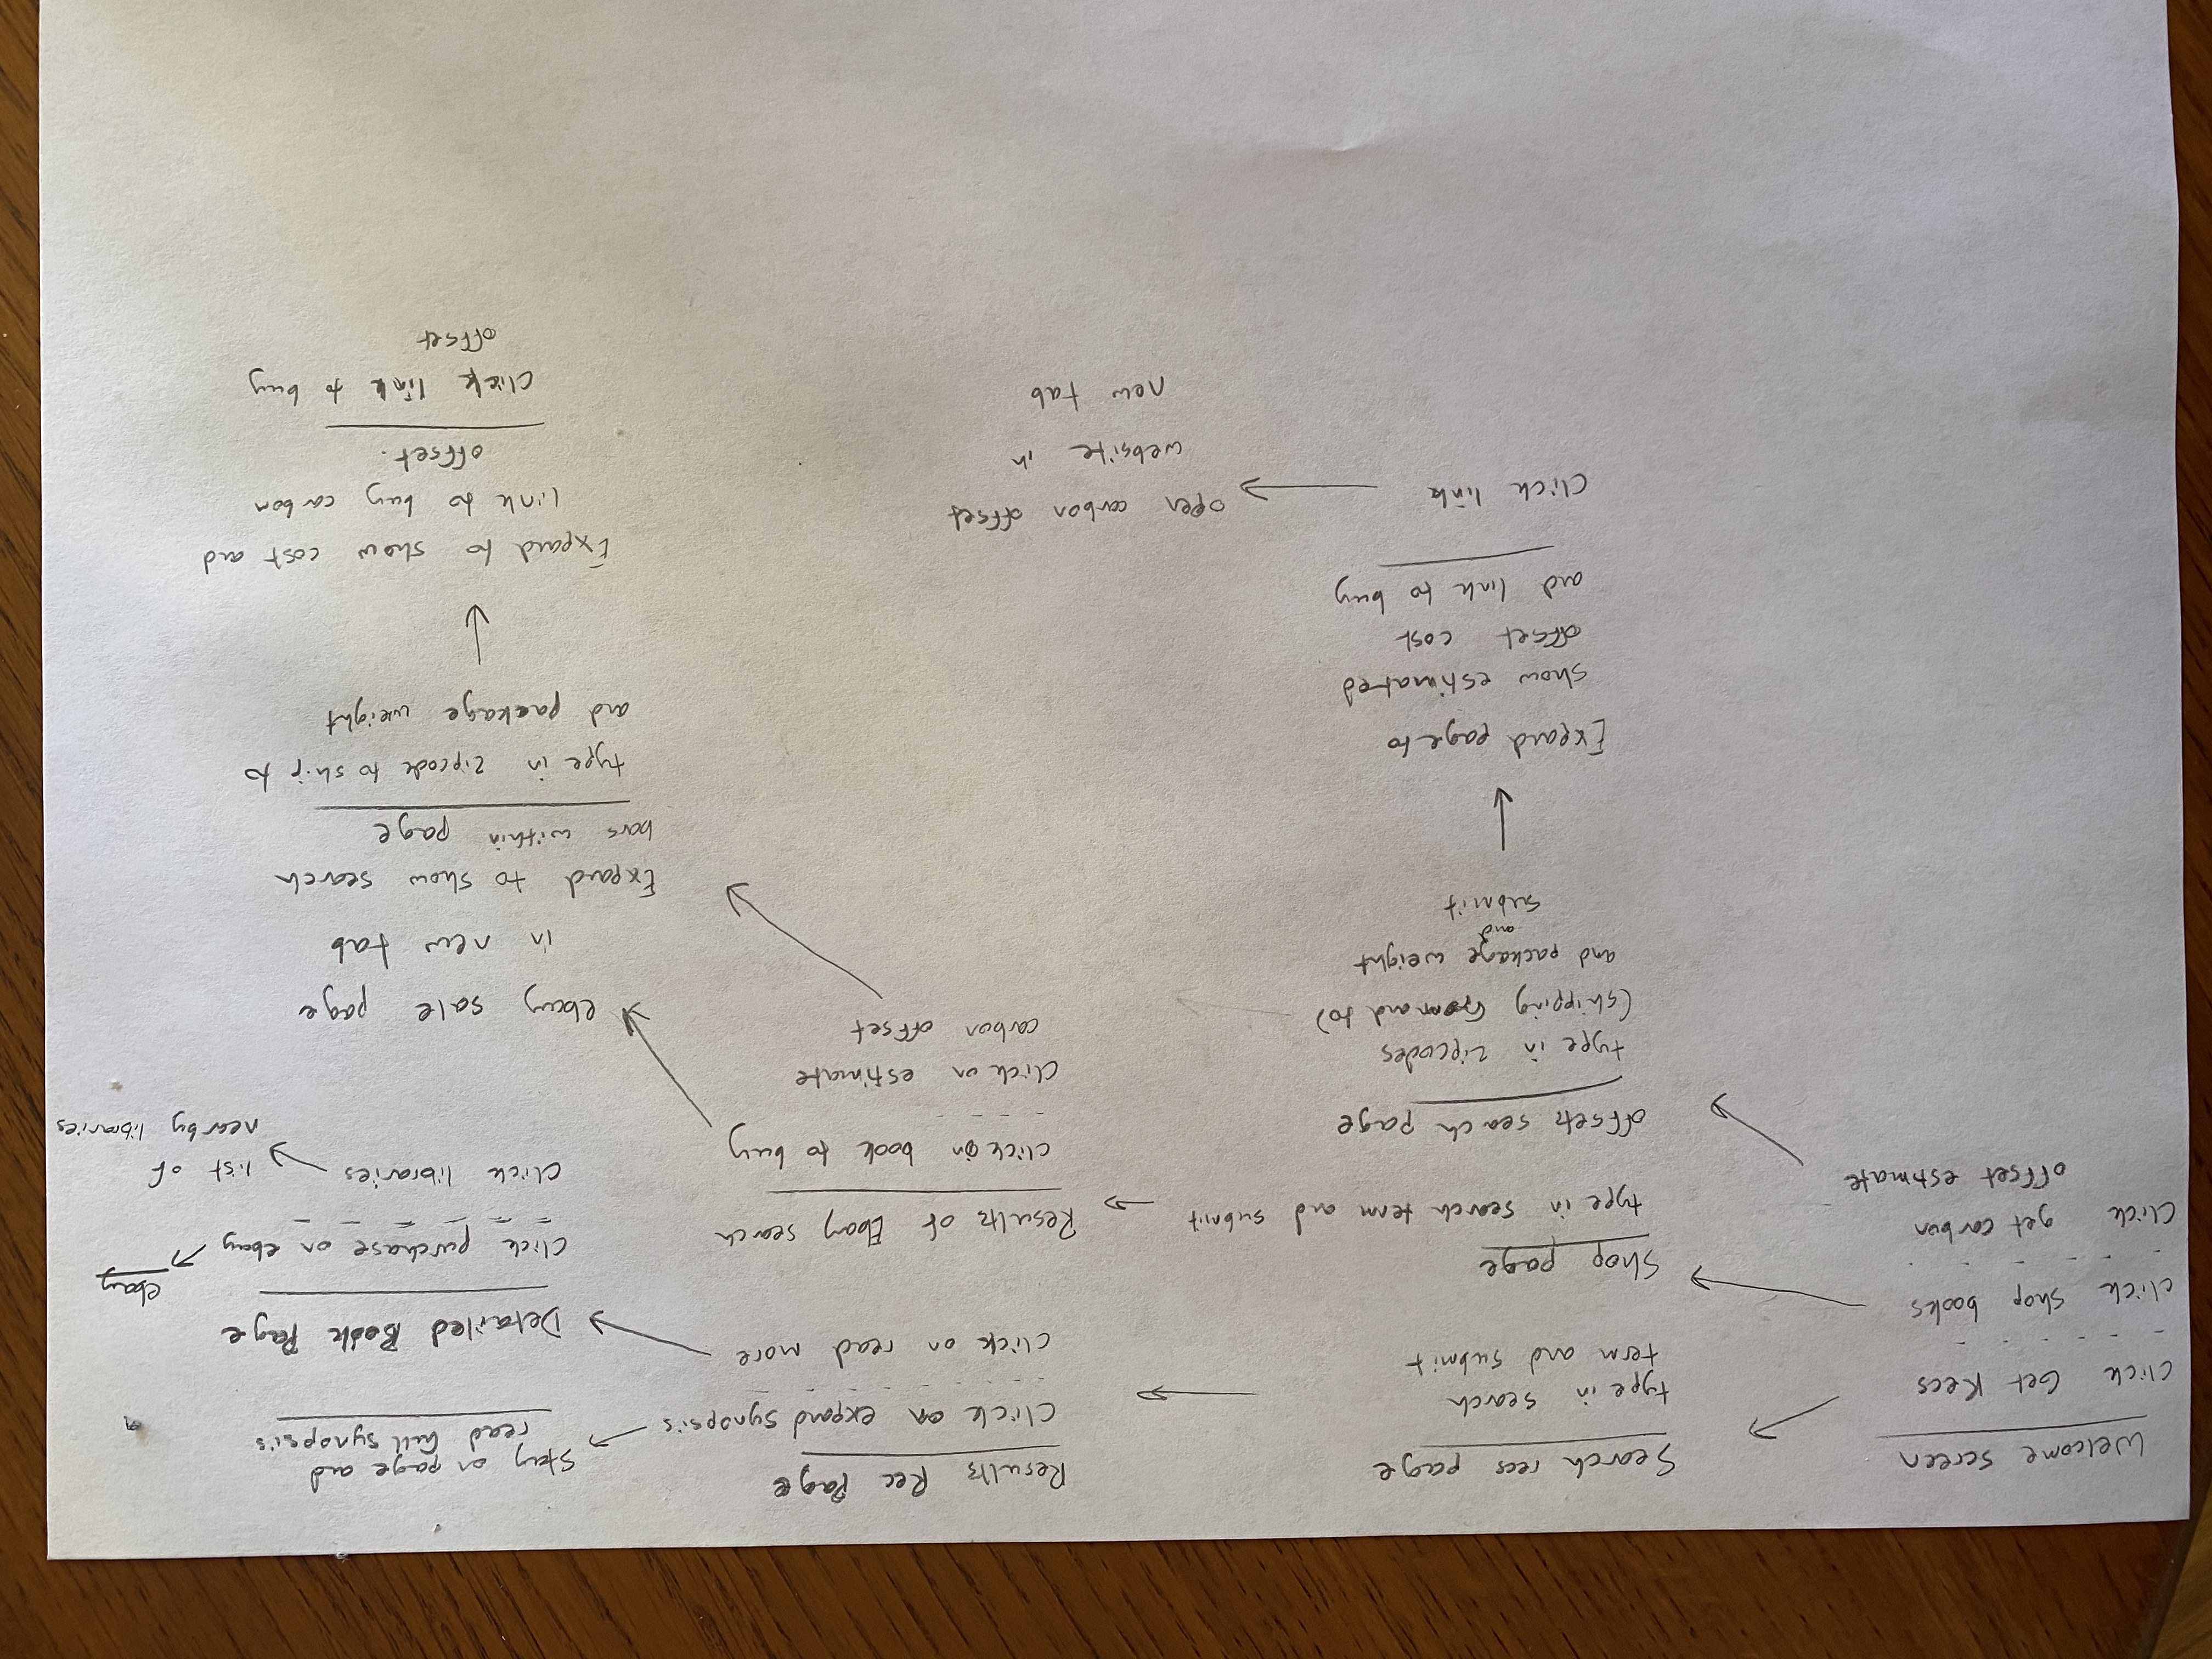 Welcome screen
Click Get Recs
click shop books
Click get carbon
offset estimate
Search recs page
type in search
term and submit
Shop page
type in search term and submit
offsets search page
type in zipcodes
(shipping from and to)
and package weight
and
submit
Expand page to
show estimated
offset cost
and link to buy
Click link
open carbon offset
website in
new tab
Results Rec Page
Click on expand synopsis
click on read more
Results of Ebay search
click on book to buy
Click on estimate
carbon offset
Stay on page and
read full synopsis
Detailed Book Page
Click purchase on ebay
ebay
Click libraries
list of
nearby libraries
ebay sale page
in new tab
Expand to show search
bars within page
type in zipcode to ship to
and package weight
Expand to show cost and
link to buy carbon
offset.
Click link to buy
offset